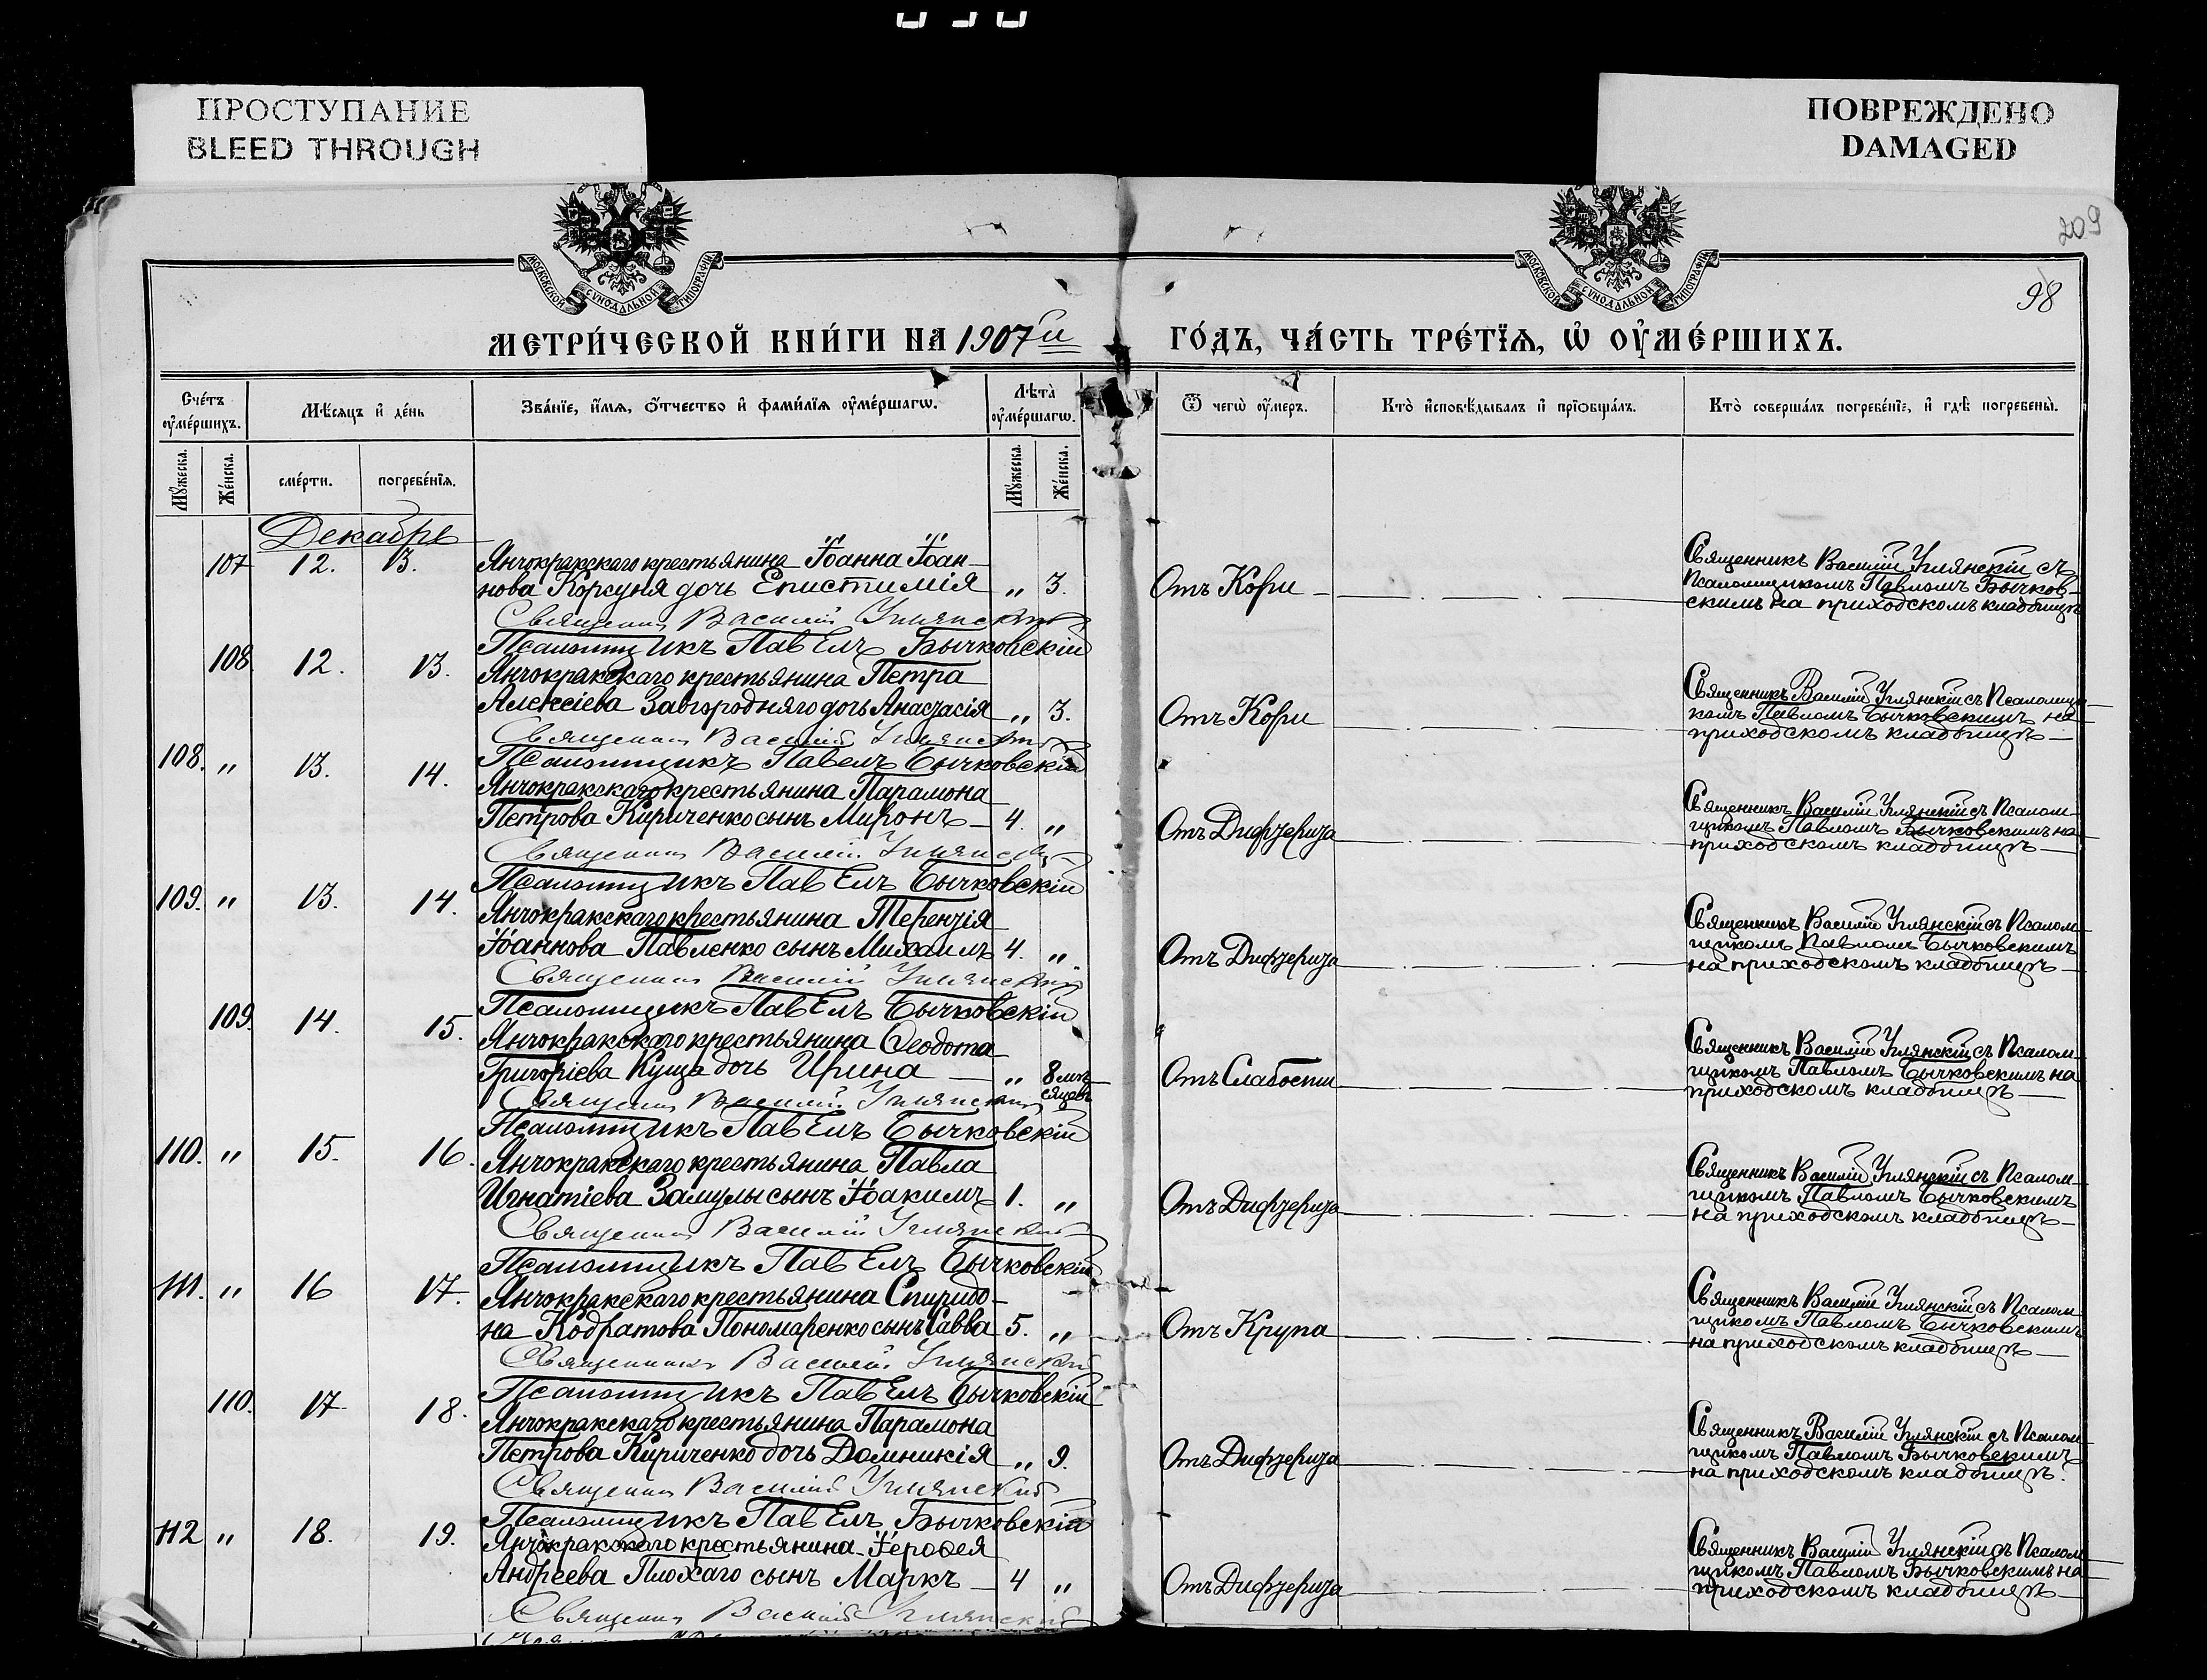 ПРОСТУПАНИЕ
BLEED THROUGH
ПОВРЕЖДЕНО
DAMAGED
209
98
МОСКОВСКОЙ СѴНОДАЛЬНОЙ ТИПОГРАФІИ
МОСКОВСКОЙ СѴНОДАЛЬНОЙ ТИПОГРАФІИ
МЕТРИ́ЧЕСКОЙ КНИ́ГИ НА 1907 й ГО́ДЪ, ЧА́СТЬ ТРЕ́ТЇѦ, Ѡ҆ ОУ҆МЕ́РШИХЪ.
Сче́тъ оу҆ме́ршихъ.
Мѣ́сяцъ и҆ де́нь
Зва́нїе, и҆́мя, ѻ҆́тчество и҆ фами́лїя оу҆ме́ршагѡ.
Лѣ́та оу҆ме́ршагѡ.
Ѿ чегѡ̀ оу҆́меръ.
Кто̀ и҆сповѣ́дывалъ и҆ прїѡбща́лъ.
Кто̀ соверша́лъ погребе́нїе, и҆ гдѣ̀ погребены̀.
Му́жеска. Же́нска. сме́рти. погребе́нїя. Му́жеска. Же́нска.
Декабрь
107 12. 13. Янчокракскаго крестьянина Іоанна Іоан-
нова Корсуня дочь Епистимія „ 3. Отъ Кори
Священникъ Василій Углянскій
Псаломщикъ Павелъ Бычковскій
Священникъ Василій Углянскій съ
Псаломщикомъ Павломъ Бычков-
скимъ на приходскомъ кладбищѣ
108 12. 13. Янчокракскаго крестьянина Петра
Алексіева Завгородняго дочь Анастасія „ 3. Отъ Кори
Священникъ Василій Углянскій
Псаломщикъ Павелъ Бычковскій
Священникъ Василій Углянскій съ Псаломщи-
комъ Павломъ Бычковскимъ на
приходскомъ кладбищѣ
108. „ 13. 14. Янчокракскаго крестьянина Парамона
Петрова Кириченко сынъ Миронъ 4. „ Отъ Дифтерита
Священникъ Василій Углянскій
Псаломщикъ Павелъ Бычковскій
Священникъ Василій Углянскій съ Псалом-
щикомъ Павломъ Бычковскимъ на
приходскомъ кладбищѣ
109. „ 13. 14. Янчокракскаго крестьянина Терентія
Іоаннова Павленко сынъ Михаилъ 4. „ Отъ Дифтерита
Священникъ Василій Углянскій
Псаломщикъ Павелъ Бычковскій
Священникъ Василій Углянскій съ Псалом-
щикомъ Павломъ Бычковскимъ
на приходскомъ кладбищѣ
109. 14. 15. Янчокракскаго крестьянина Ѳеодота
Григоріева Куща дочь Ирина „ 8 мѣ-
сяцевъ Отъ Слабости
Священникъ Василій Углянскій
Псаломщикъ Павелъ Бычковскій
Священникъ Василій Углянскій съ Псалом-
щикомъ Павломъ Бычковскимъ на
приходскомъ кладбищѣ
110. „ 15. 16. Янчокракскаго крестьянина Павла
Игнатіева Замулы сынъ Іоакимъ 1. „ Отъ Дифтерита
Священникъ Василій Углянскій
Псаломщикъ Павелъ Бычковскій
Священникъ Василій Углянскій съ Псалом-
щикомъ Павломъ Бычковскимъ
на приходскомъ кладбищѣ
111. „ 16 17. Янчокракскаго крестьянина Спиридо-
на Кодратова Пономаренко сынъ Савва 5. „ Отъ Крупа
Священникъ Василій Углянскій
Псаломщикъ Павелъ Бычковскій
Священникъ Василій Углянскій съ Псалом-
щикомъ Павломъ Бычковскимъ
на приходскомъ кладбищѣ
110. 17 18. Янчокракскаго крестьянина Парамона
Петрова Кириченко дочь Домникія „ 9. Отъ Дифтерита
Священникъ Василій Углянскій
Псаломщикъ Павелъ Бычковскій
Священникъ Василій Углянскій съ Псалом-
щикомъ Павломъ Бычковскимъ
на приходскомъ кладбищѣ.
112 „ 18. 19. Янчокракскаго крестьянина Іероѳея
Андреева Плохаго сынъ Маркъ 4 „ Отъ Дифтерита
Священникъ Василій Углянскій
Священникъ Василій Углянскій съ Псалом-
щикомъ Павломъ Бычковскимъ на
приходскомъ кладбищѣ